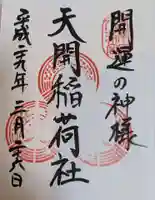 開運の神様
天開稲荷社
平成二九年 二月二六日